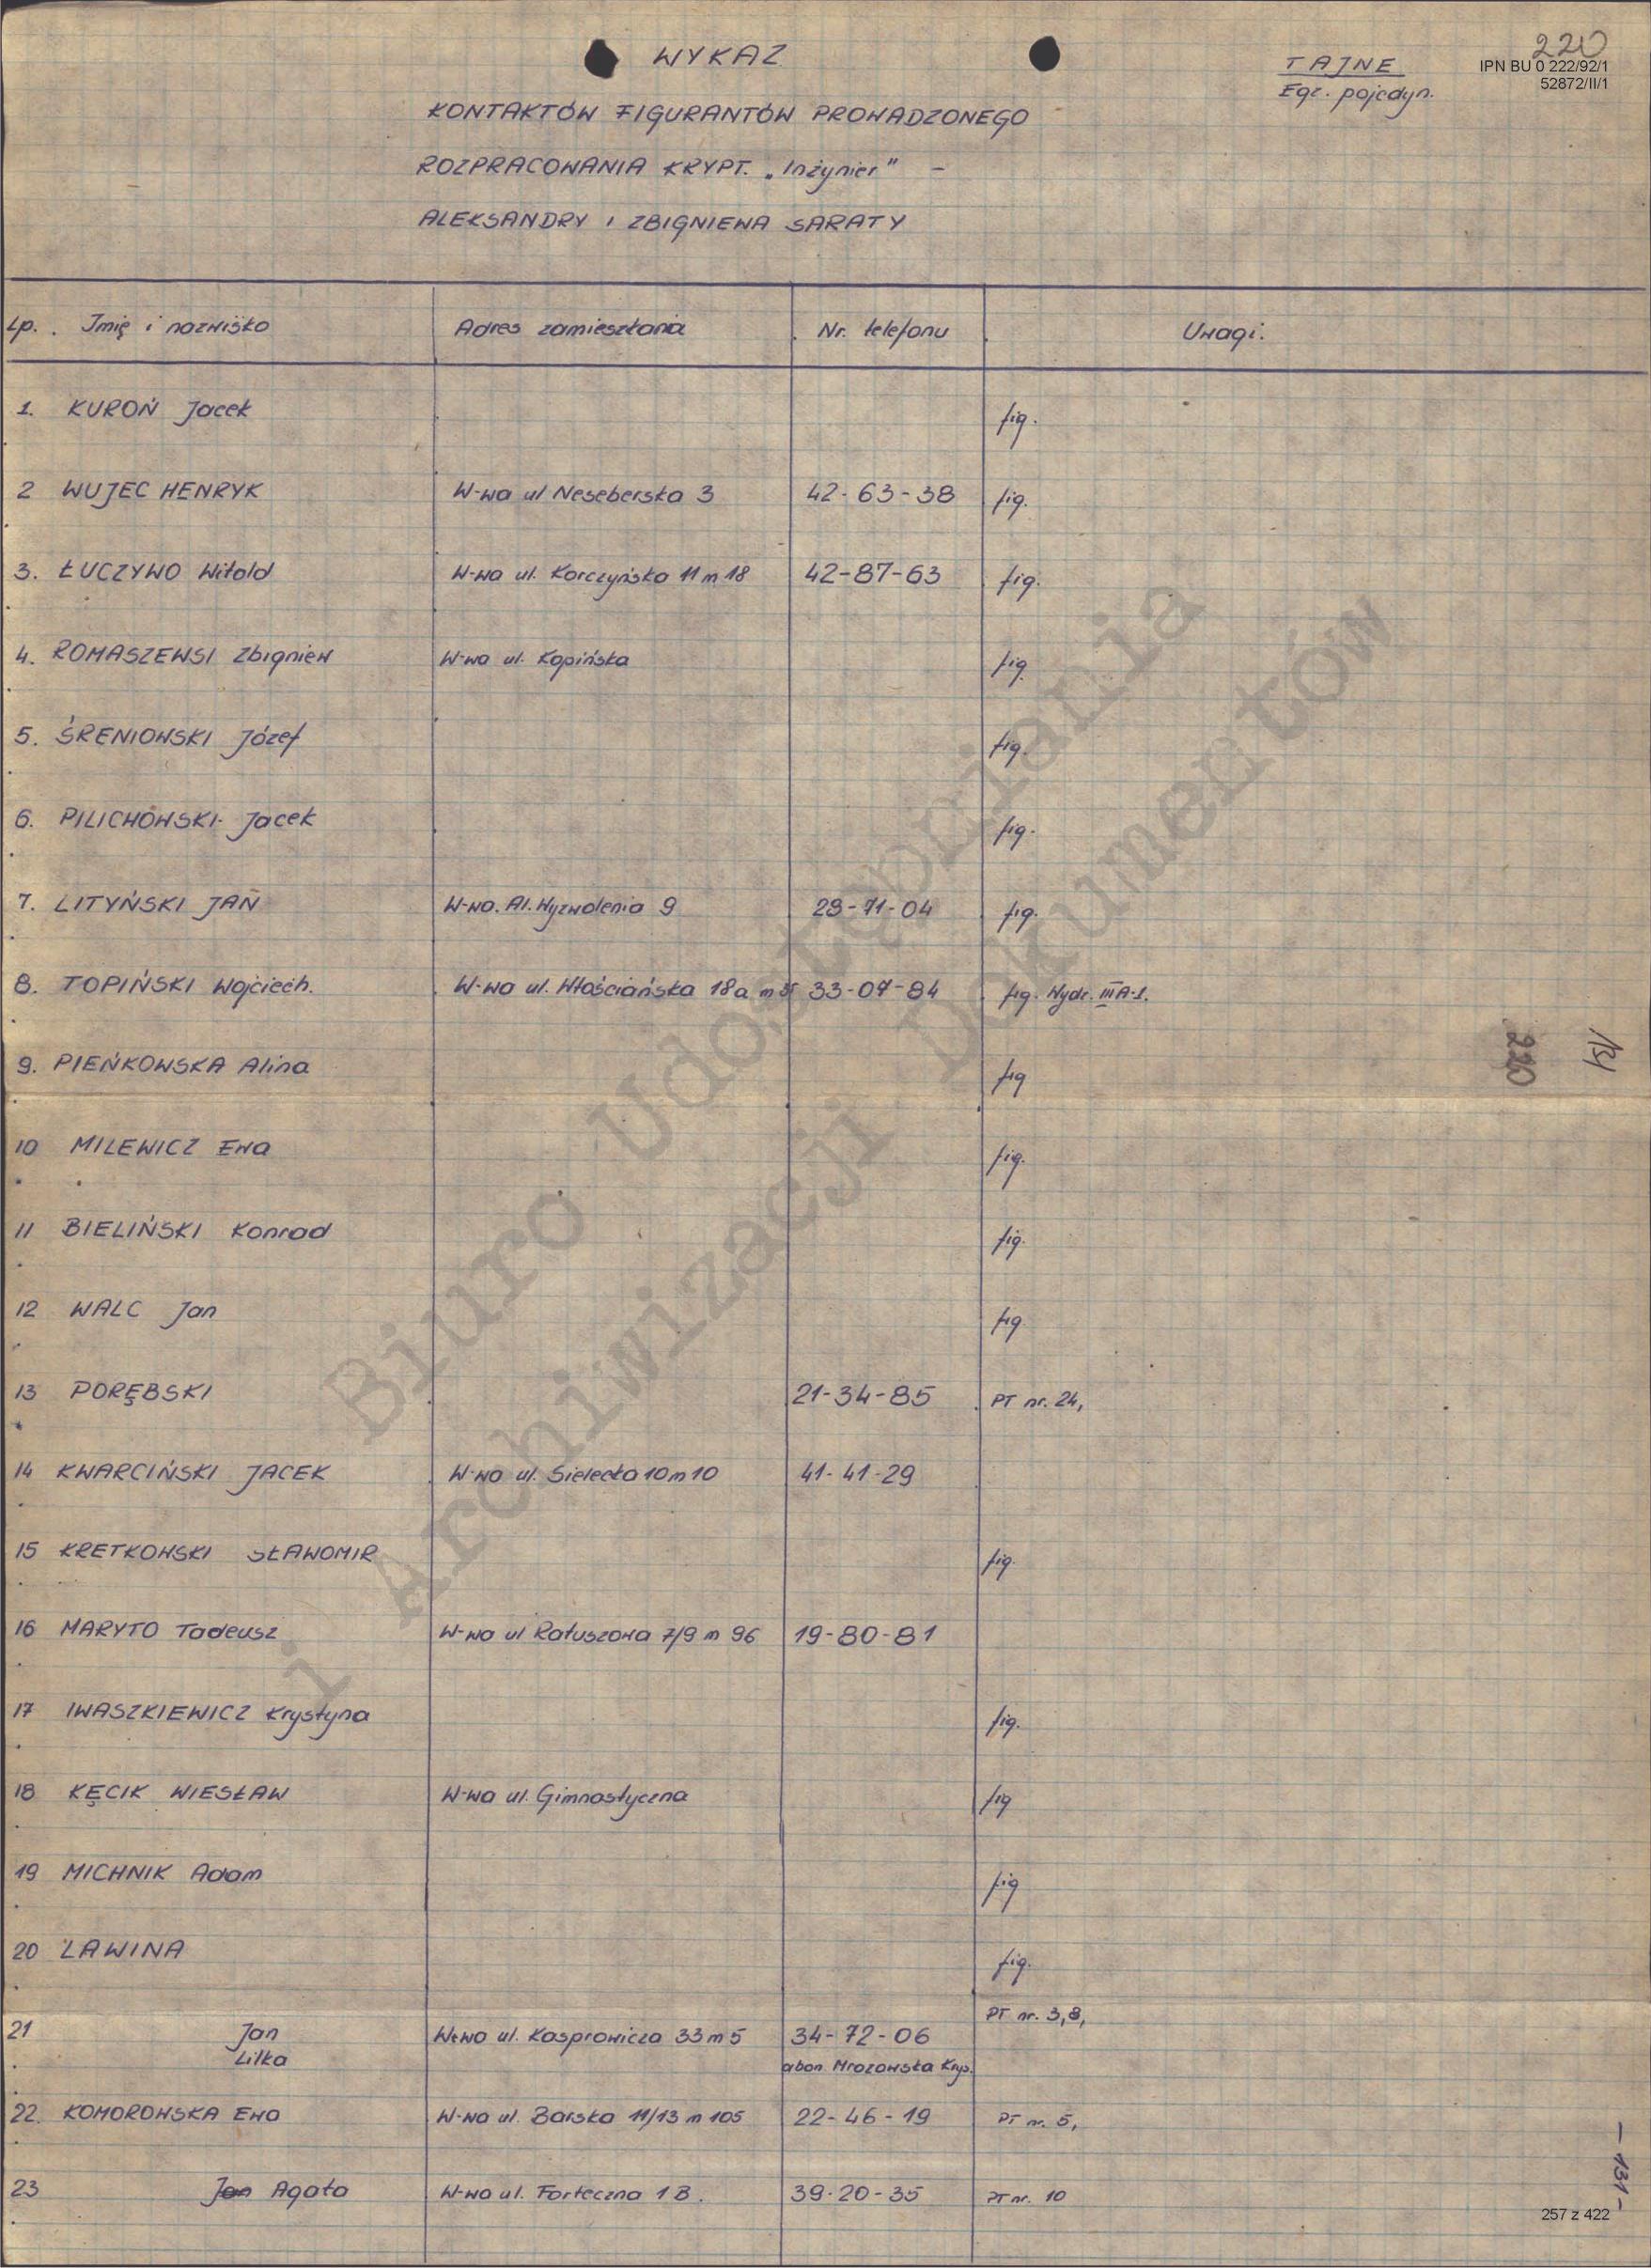 220
WYKAZ
TAJNE
IPN BU 0 222/92/1
Egz. pojedyn.
52872/II/1
KONTAKTÓW FIGURANTÓW PROWADZONEGO
ROZPRACOWANIA KRYPT. „Inżynier" -
ALEKSANDRY i ZBIGNIEWA SARATY
Lp. Imię i nazwisko Adres zamieszkania Nr. telefonu Uwagi.
1. KUROŃ Jacek fig.
2 WUJEC HENRYK W-wa ul Neseberska 3 42-63-38 fig.
3. ŁUCZYWO Witold W-wa ul. Korczyńska 11 m 18 42-87-63 fig.
4. ROMASZEWSI Zbigniew W-wa ul. Kopińska fig.
5. ŚRENIOWSKI Józef fig.
6. PILICHOWSKI Jacek fig.
7. LITYŃSKI JAN W-wa. Al. Wyzwolenia 9 28-71-04 fig.
8. TOPIŃSKI Wojciech. W-wa ul. Włościańska 18a m 33-07-84 fig. Wydz. III A-1.
9. PIEŃKOWSKA Alina fig
10 MILEWICZ Ewa fig.
11 BIELIŃSKI Konrad fig.
12 WALC Jan fig.
13 PORĘBSKI 21-34-85 PT nr. 24,
14 KWARCIŃSKI JACEK W-wa ul. Sielecka 10 m 10 41-41-29
15 KRETKOWSKI SŁAWOMIR fig.
16 MARYTO Tadeusz W-wa ul Ratuszowa 7/9 m 96 19-80-81
17 IWASZKIEWICZ Krystyna fig.
18 KĘCIK WIESŁAW W-wa ul. Gimnastyczna fig
19 MICHNIK Adam fig
20 LAWINA fig.
PT nr. 3,8,
21 Jan W-wa ul. Kasprowicza 33 m 5 34-72-06
Lilka abon. Mrozowska Krys.
22. KOMOROWSKA Ewa W-wa ul. Barska 11/13 m 105 22-46-19 PT nr. 5,
23 Jan Agata W-wa ul. Forteczna 1 B. 39-20-35 PT nr. 10
220
- 131 -
257 z 422
Biuro Udostępniania
i Archiwizacji Dokumentów